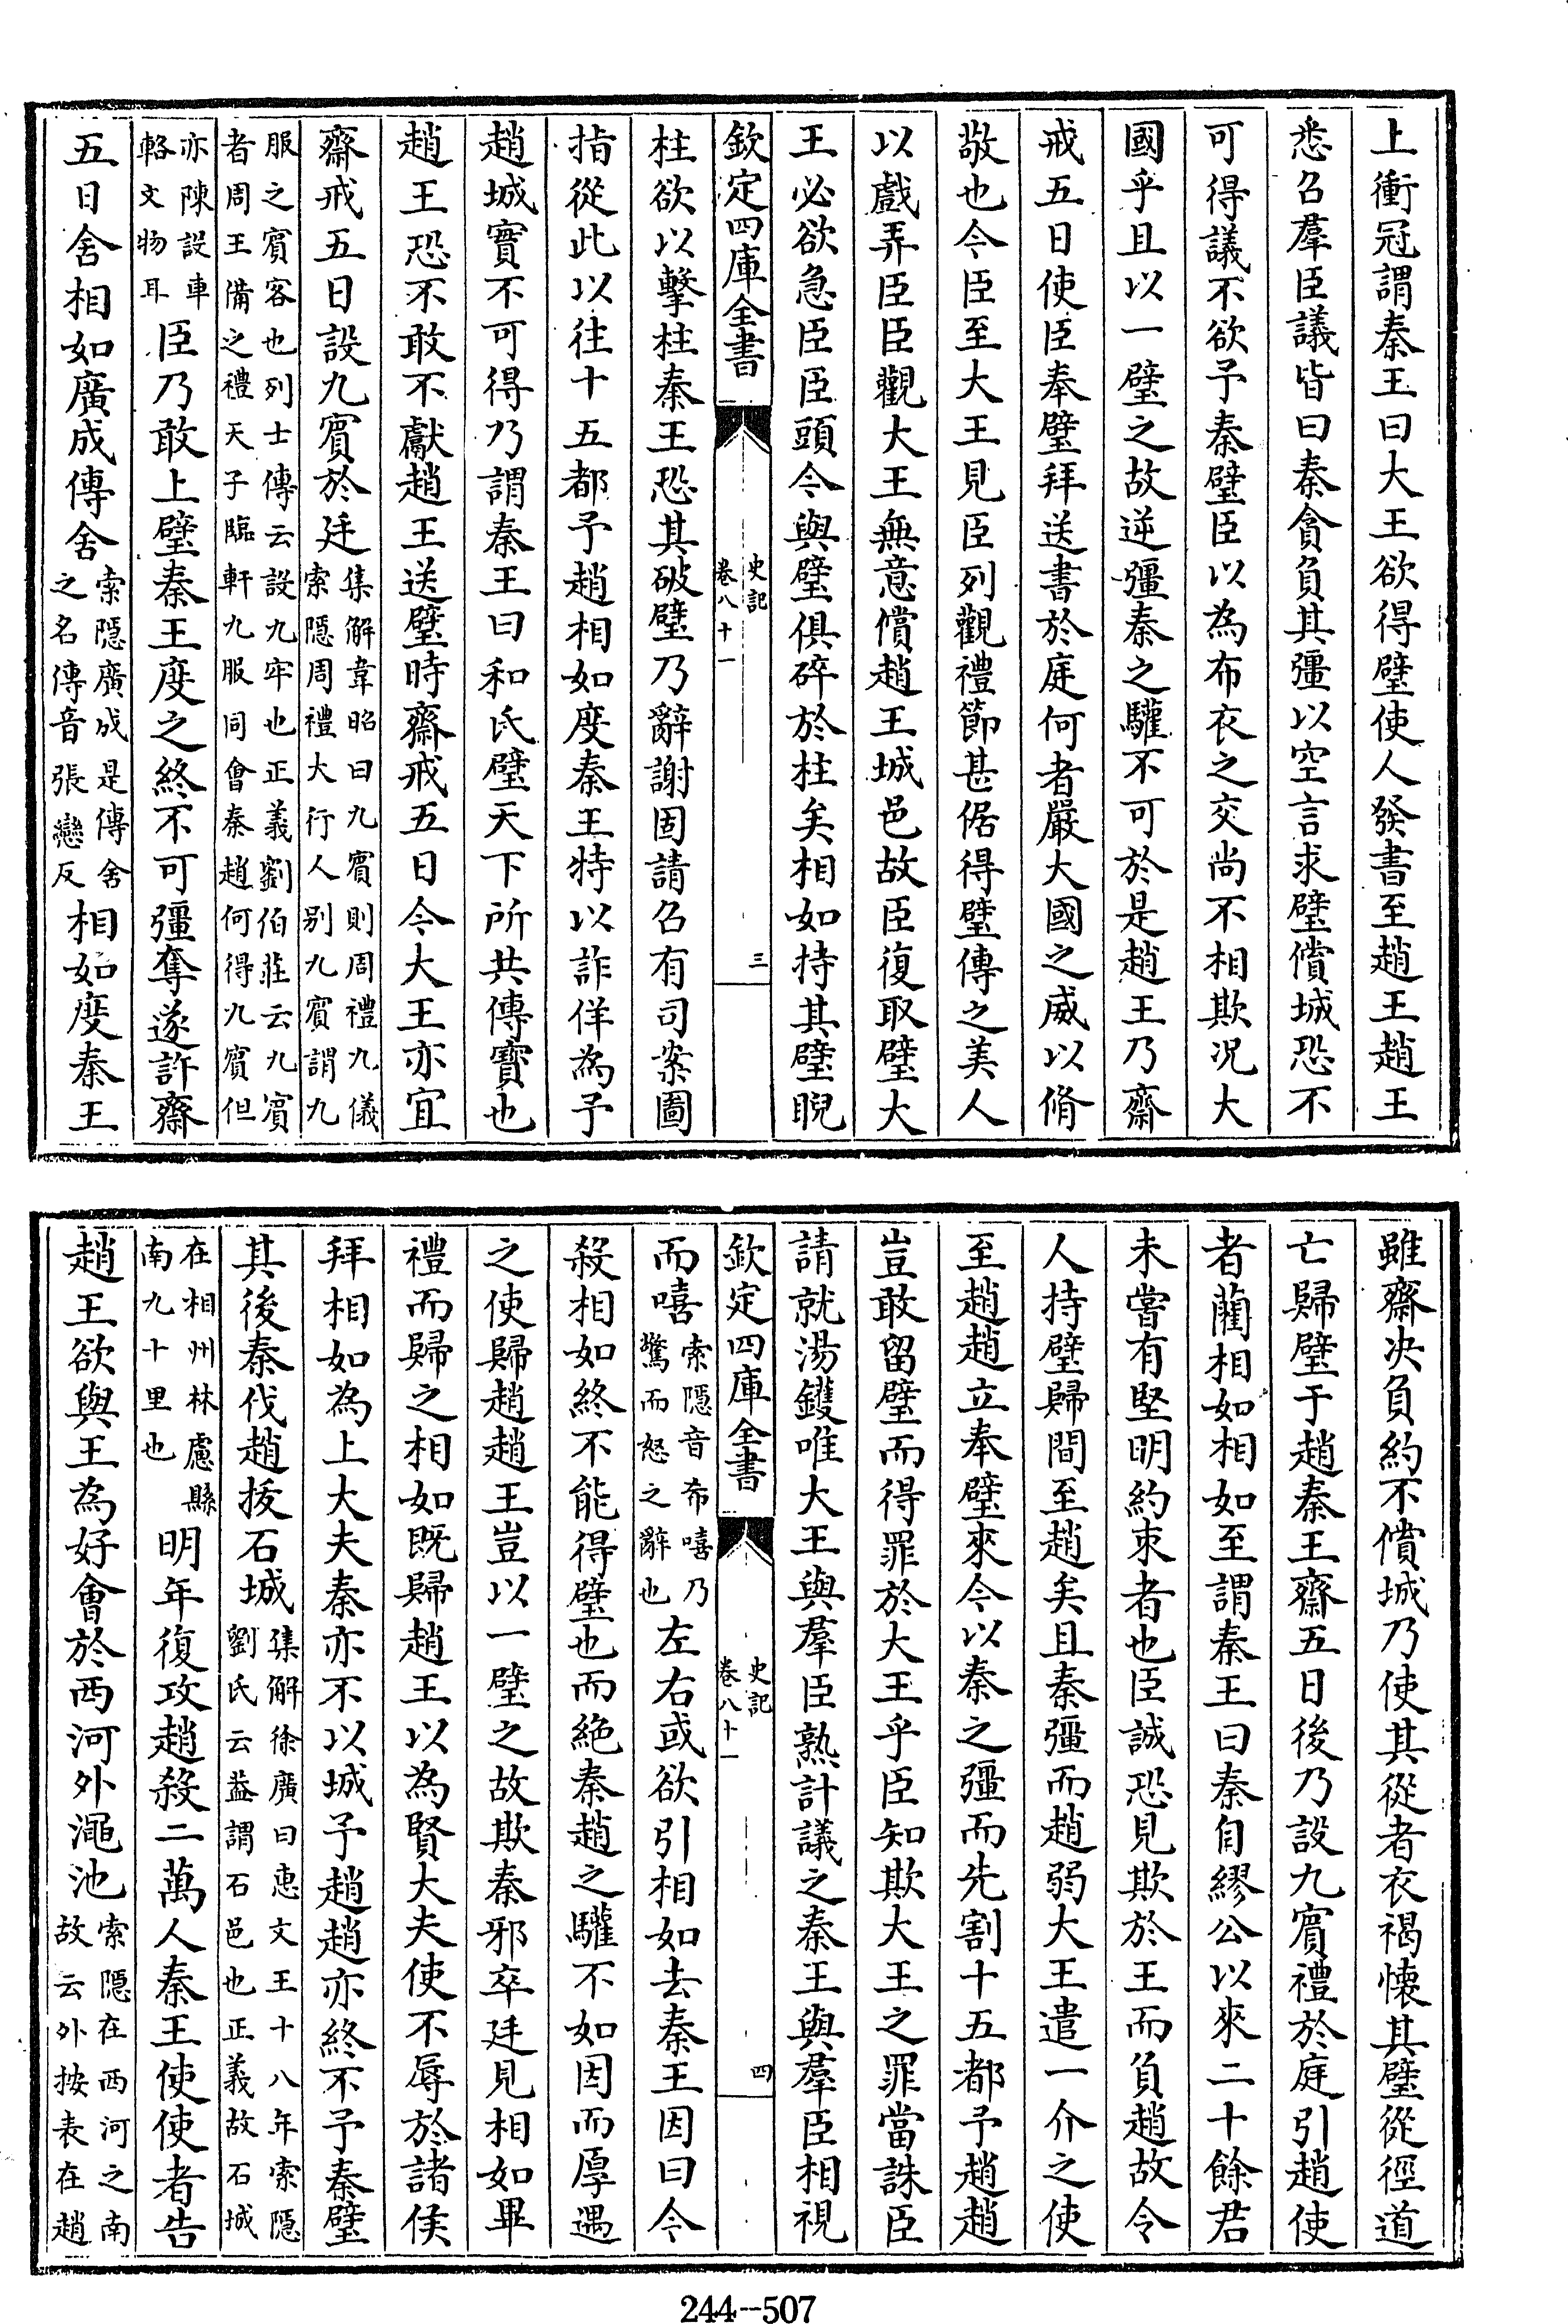 上衝冠謂秦王曰大王欲得璧使人發書至趙王趙王
悉召羣臣議皆曰秦貪負其彊以空言求璧償城恐不
可得議不欲予秦璧臣以為布衣之交尚不相欺况大
國乎且以一璧之故逆彊秦之驩不可於是趙王乃齋
戒五日使臣奉璧拜送書於庭何者嚴大國之威以脩
敬也今臣至大王見臣列觀禮節甚倨得璧傳之美人
以戲弄臣臣觀大王無意償趙王城邑故臣復取璧大
王必欲急臣臣頭今與璧俱碎於柱矣相如持其璧睨
欽定四庫全書
史記
卷八十一
三
柱欲以擊柱秦王恐其破璧乃辭謝固請召有司案圖
指從此以往十五都予趙相如度秦王特以詐佯為予
趙城實不可得乃謂秦王曰和氏璧天下所共傳寶也
趙王恐不敢不獻趙王送璧時齋戒五日今大王亦宜
齋戒五日設九賓於廷
集解韋昭曰九賓則周禮九儀
索隱周禮大行人别九賓謂九
服之賓客也列士傳云設九牢也正義劉伯莊云九賓
者周王備之禮天子臨軒九服同會秦趙何得九賓但
亦陳設車
輅文物耳
臣乃敢上璧秦王度之終不可彊奪遂許齋
五日舍相如廣成傳舍
索隱廣成是傳舍
之名傳音張戀反
相如度秦王
雖齋决負約不償城乃使其從者衣褐懷其璧從徑道
亡歸璧于趙秦王齋五日後乃設九賓禮於庭引趙使
者藺相如相如至謂秦王曰秦自繆公以來二十餘君
未嘗有堅明約束者也臣誠恐見欺於王而負趙故令
人持璧歸間至趙矣且秦彊而趙弱大王遣一介之使
至趙趙立奉璧來今以秦之彊而先割十五都予趙趙
豈敢留璧而得罪於大王乎臣知欺大王之罪當誅臣
請就湯鑊唯大王與羣臣熟計議之秦王與羣臣相視
欽定四庫全書
史記
卷八十一
四
而嘻
索隱音希嘻乃
驚而怒之辭也
左右或欲引相如去秦王因曰今
殺相如終不能得璧也而絶秦趙之驩不如因而厚遇
之使歸趙趙王豈以一璧之故欺秦邪卒廷見相如畢
禮而歸之相如既歸趙王以為賢大夫使不辱於諸侯
拜相如為上大夫秦亦不以城予趙趙亦終不予秦璧
其後秦伐趙拔石城
集解徐廣曰惠文王十八年索隱
劉氏云葢謂石邑也正義故石城
在相州林慮縣
南九十里也
明年復攻趙殺二萬人秦王使使者告
趙王欲與王為好會於西河外澠池
索隱在西河之南
故云外按表在趙
244--507